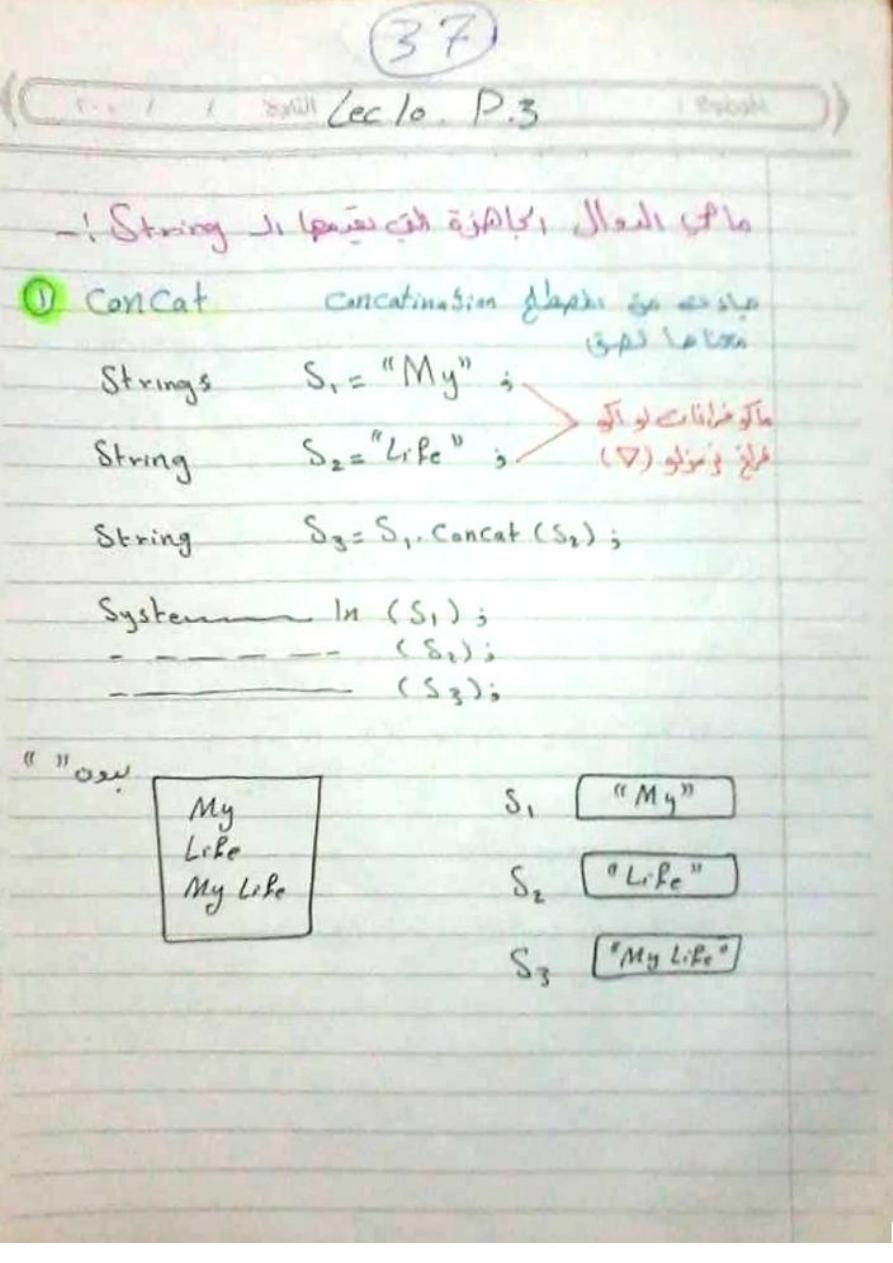 37
Lec 10. P.3
ما هي الدوال الجاهزة التي يقيمها الـ String !-
① Concat جاءت من المصطلح Concatination
معناها لصق
Strings S1 = "My" ;
String S2 = "Life" ;
ماكو فراغات لو اكو
فراغ نرمزلو (▽)
String S3 = S1. Concat (S2) ;
System ln (S1) ;
(S2) ;
(S3) ;
بدون " "
My
Life
My Life
S1 "My"
S2 "Life"
S3 "My Life"